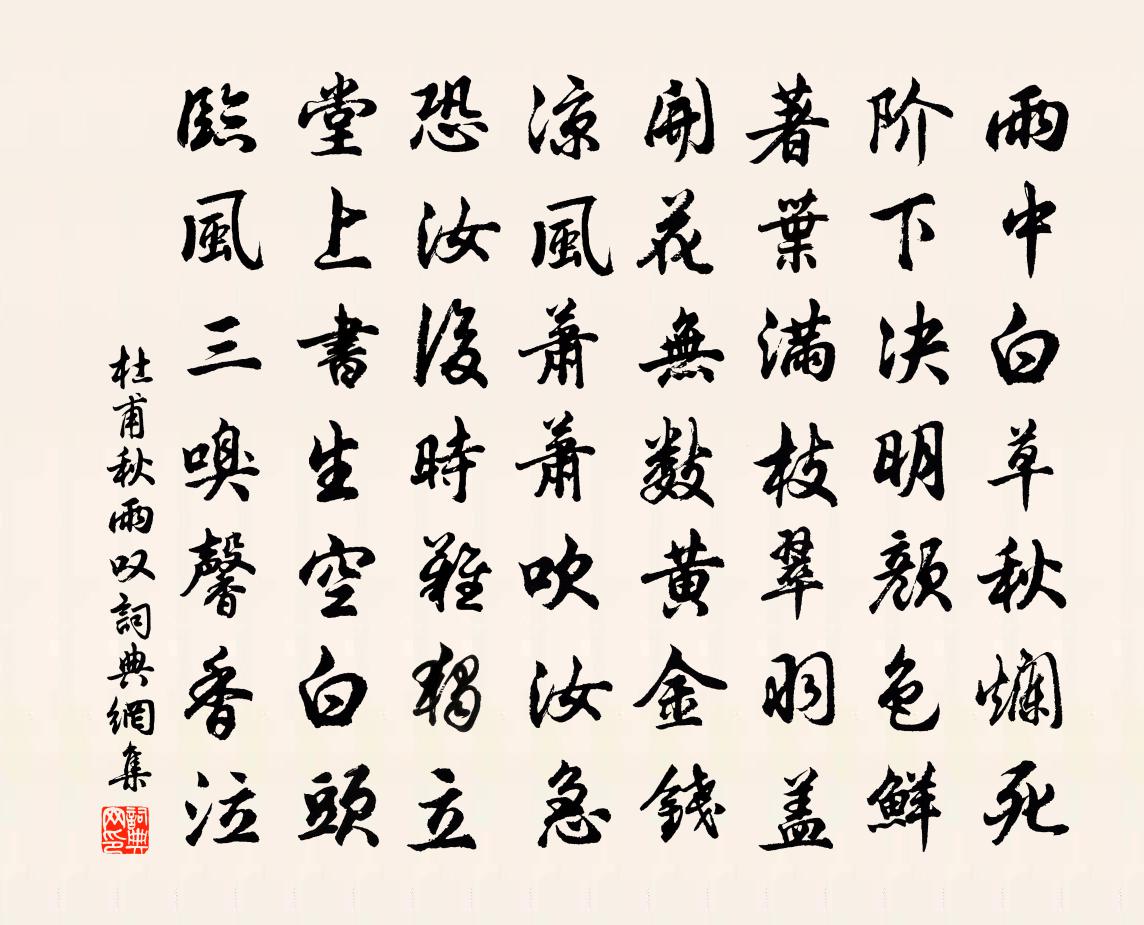 雨中白草秋爛死
阶下决明顔色鮮
著葉滿枝翠羽盖
開花無數黄金錢
涼風蕭蕭吹汝急
恐汝後時難獨立
堂上書生空白頭
臨風三嗅馨香泣
杜甫秋雨叹詞典網集
詞典网印